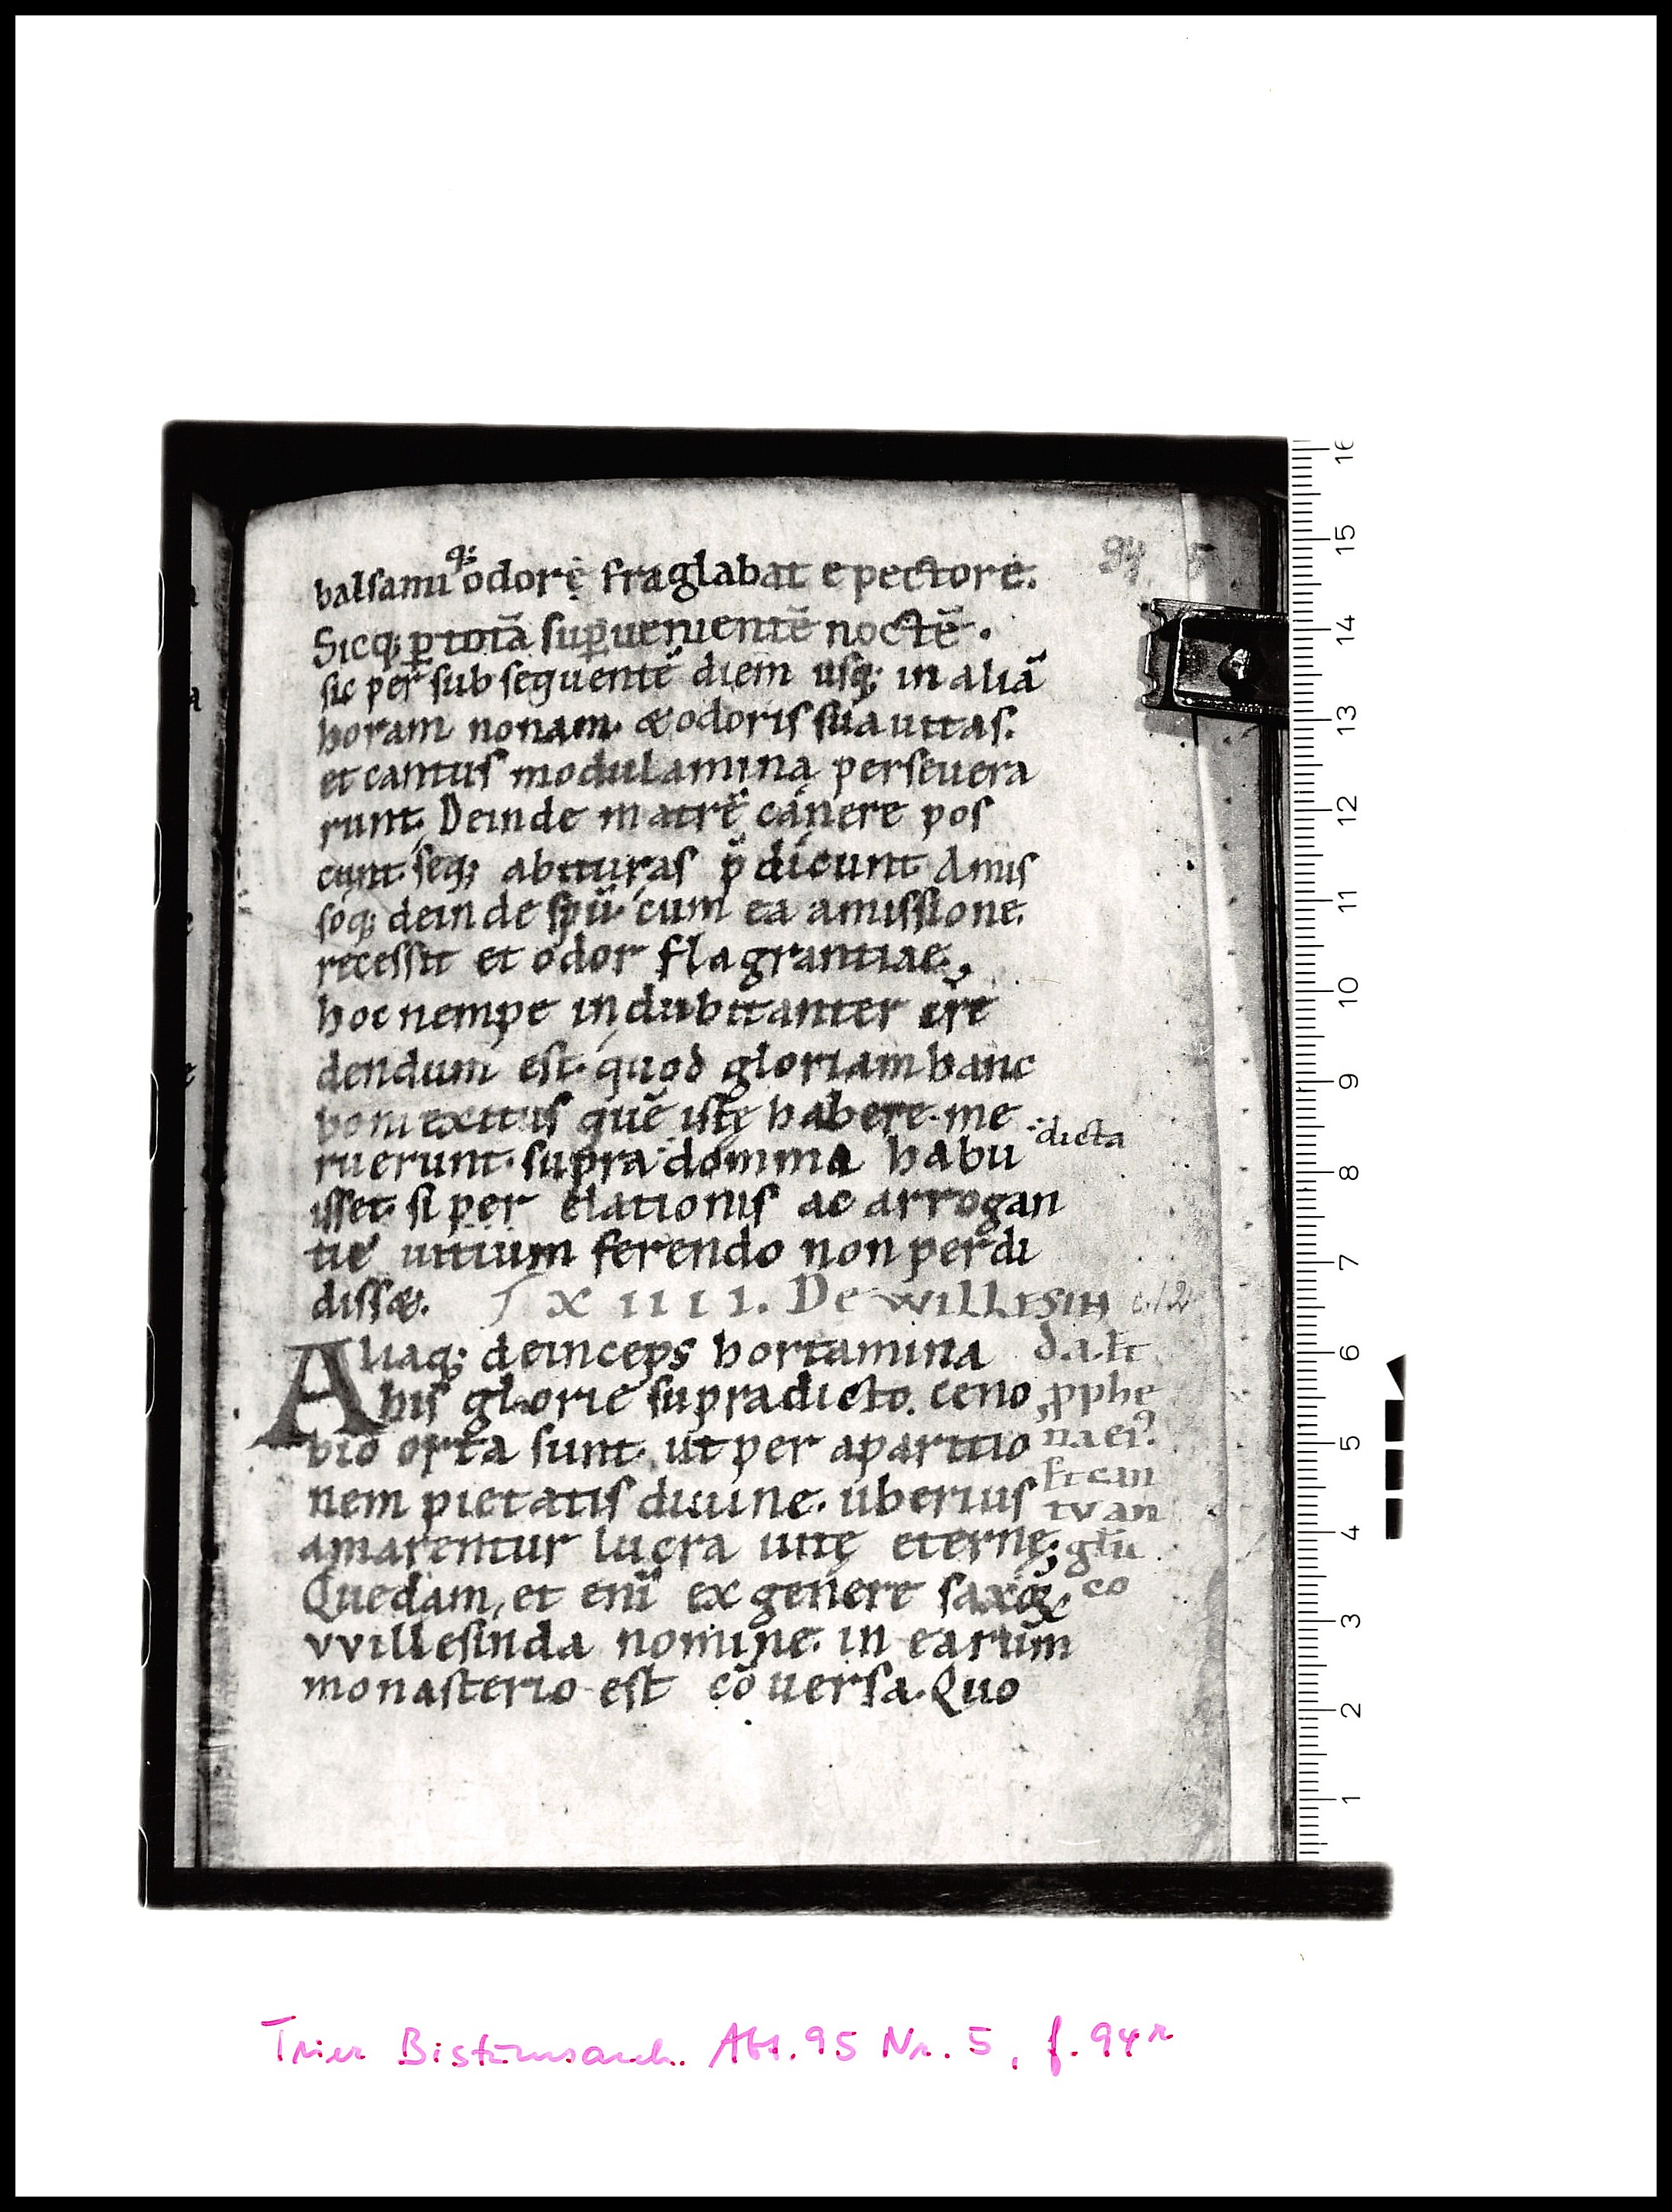 94 5
q;
balsamu odorę fraglabat e pectore.
Sicq; p̲ totā sup̲uenientē noctē.
sic per subsequentē diem usq; in aliā
horam nonam. & odoris suauitas.
et cantus modulamina perseuera
runt. Deinde matrē canere pos
cunt. seq; abituras p̄dicunt. Amis
soq; deinde sp̄u. cum ea amissione.
recessit et odor flagrantiae.,
hoc nempe indubitanter cre
dendum est. quod gloriam hanc
boni exitus quē istę habere me
ruerunt. supra domina habu
dicta
isset. si per elationis ac arrogan
tie uitium ferendo non perdi
diss&. XIIII. De WILLISIN
Aliaq; deinceps hortamina
his glorie supradicto. ceno
bio orta sunt. ut per aparitio
nem pietatis diuine. uberius
amarentur lucra uitę eternę;
Quedam, et enī ex genere saxoꝝ
vvillesinda nomine. in earum
monasterio est cōuersa. Quo
da. &
pphe
na ei?
& can
tv an
głu
co
1
2
3
4
5
6
7
8
9
10
11
12
13
14
15
16
Trier Bistumsarch. Abt. 95 Nr. 5, f. 94r